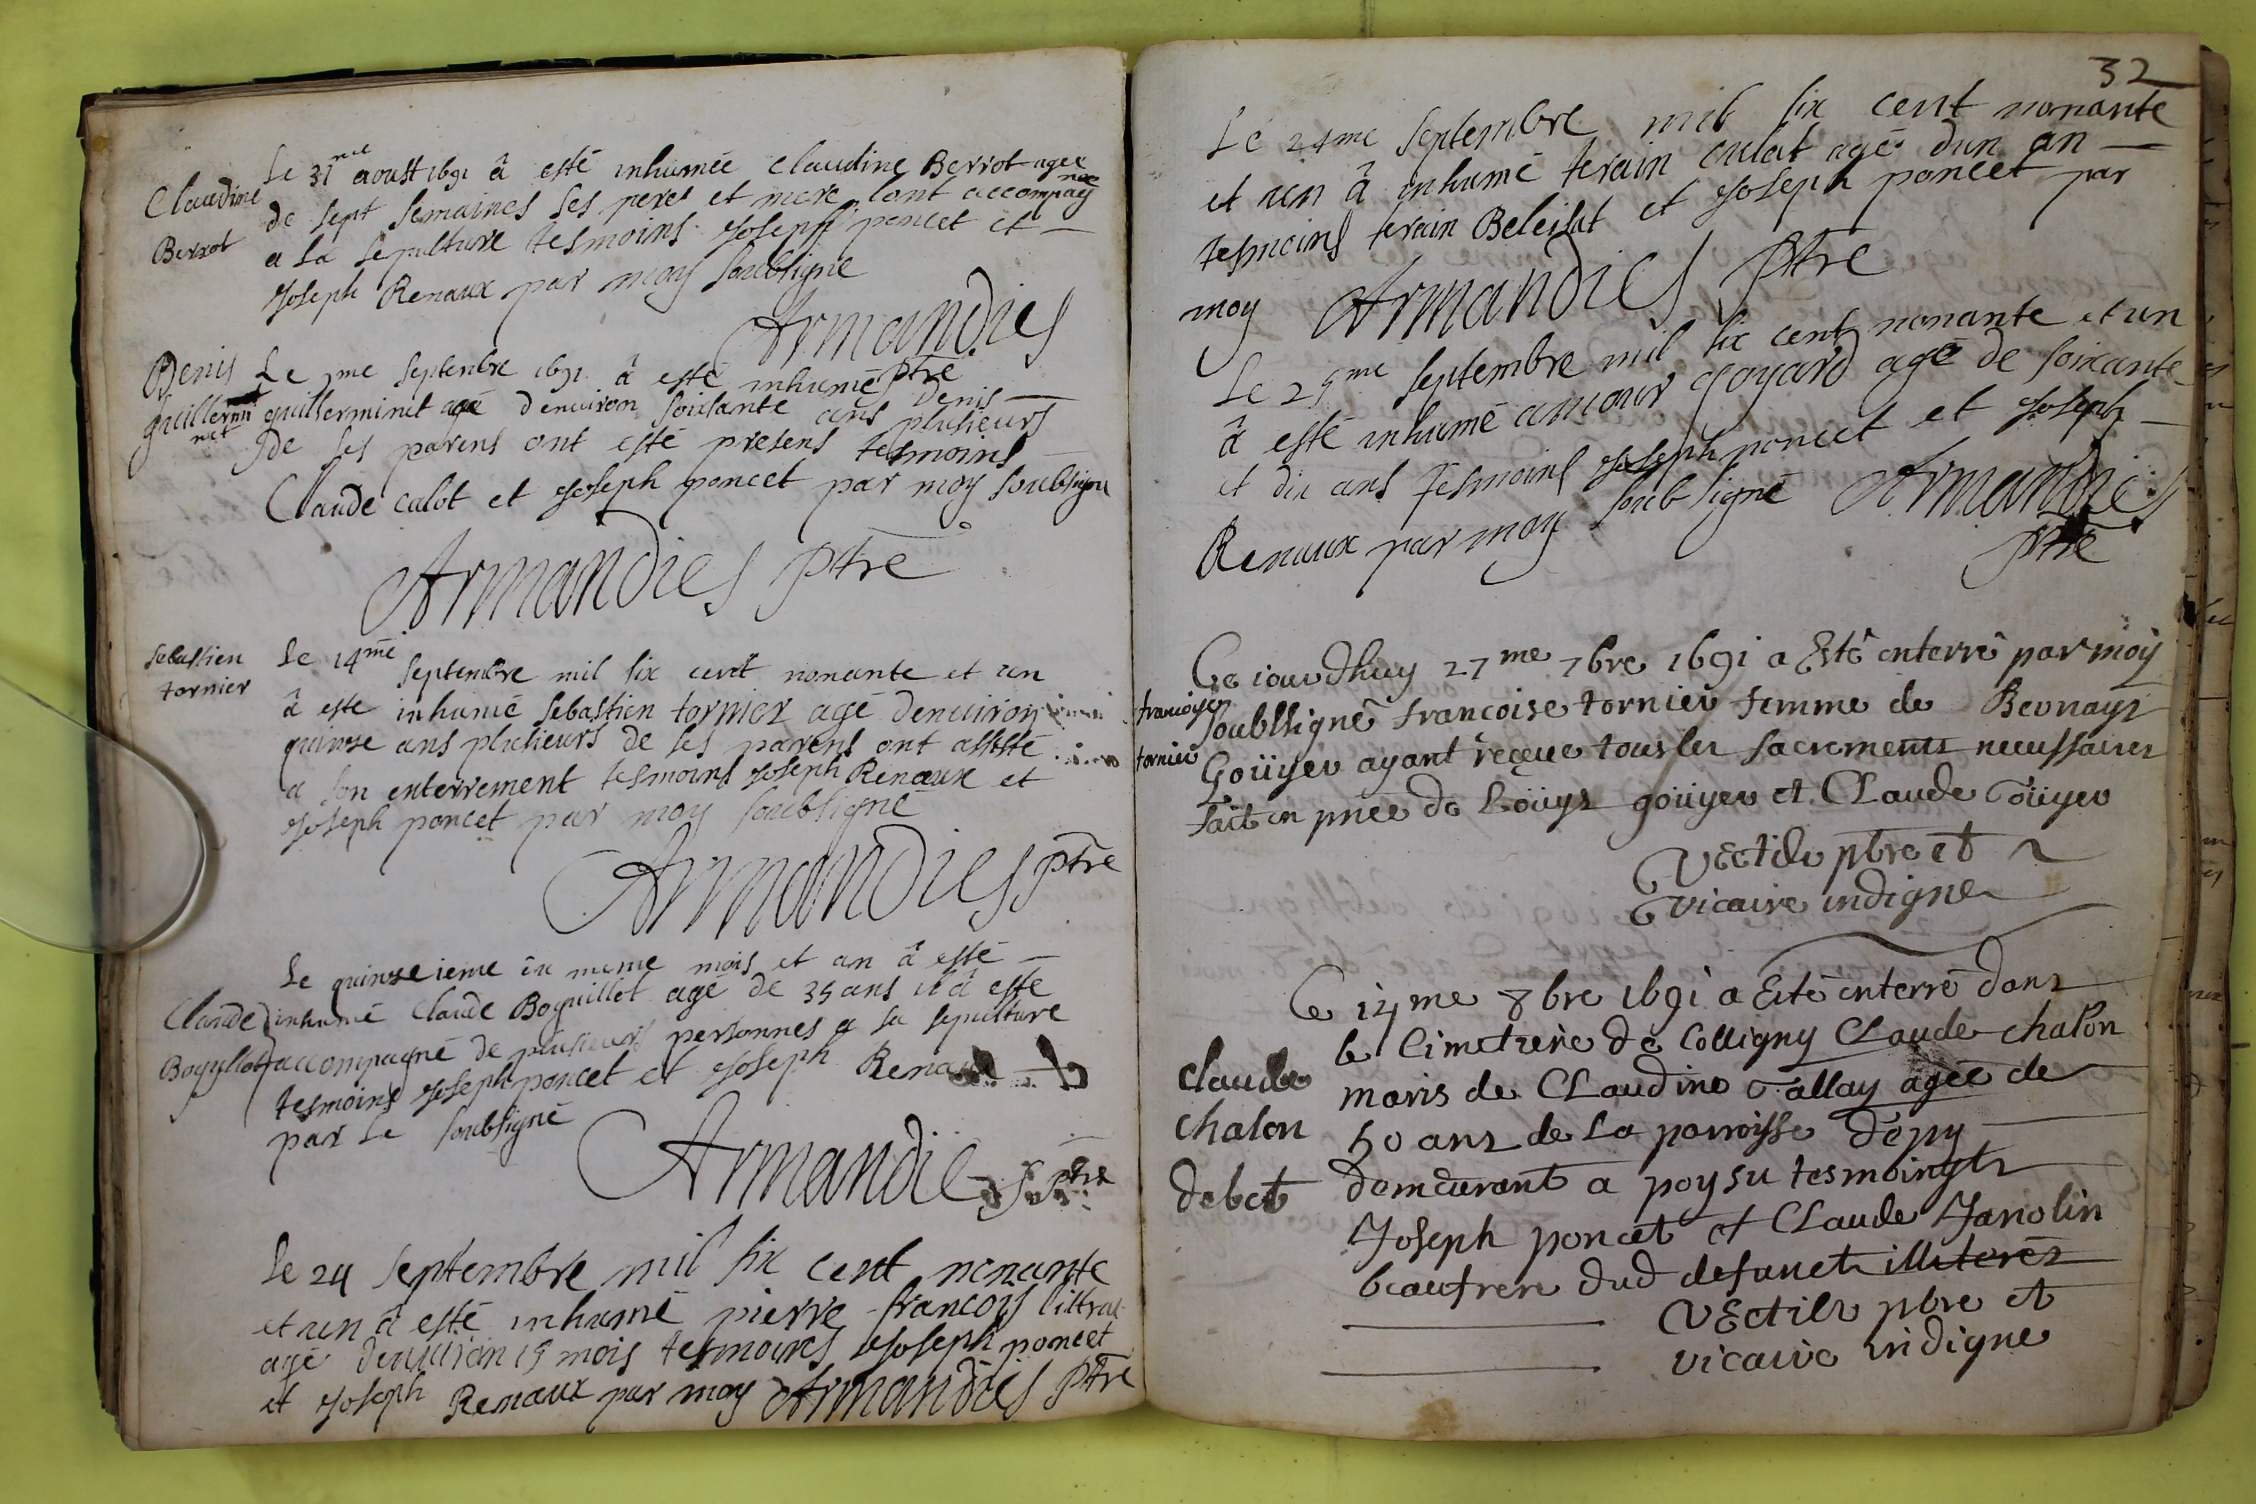 Claudine
Berrot
Le 31me aoust 1691 â esté inhumée Claudine Berrot agee
de sept semaines ses peres et mere lont accompagnee
a la sepulture tesmoins Joseph poncet et
Joseph Renaux par moy soubsigné
Armandies
ptre
Denis
guillermi
net
Le me septenbre 1691 â esté inhumé Denis
guillerminet agé denuiron soisante ans plusieurs
de ses parens ont esté presens tesmoins
Claude calot et Joseph poncet par moy soubsigné
Armandies ptre
sebastien
tornier
Le 14me septenbre mil six cent nonante et un
â este inhumé Sebastien tornier agé denuiron
quinze ans plusieurs de ses parens ont assisté
a son enterrement tesmoins Joseph Renaux et
Joseph poncet par moy soubsigné
Armandies ptre
Claude
Boguillot
Le quinzeieme du meme mois et an â esté
inhumé Claude Boguillot agé de 35 ans il â este
accompagné de plusieurs personnes a sa sepulture
tesmoins Joseph poncet et Joseph Renaux
par le soubsigné
Armandies ptre
Le 24 septembre mil six cent nonante
et un â esté inhumé pierre francoys
agé denuiron 15 mois tesmoins Joseph poncet
et Joseph Renaux par moy Armandies ptre
32
Le 24me septembre mil six cent nonante
et un â inhumé terain culat agé dun an
tesmoins terain Beleisat et Joseph poncet par
moy Armandies ptre
Le 25me septembre mil six cent nonante et un
â esté inhumé amour goyard agé de soixante
et dix ans tesmoins Joseph poncet et Joseph
Renaux par moy soubsigné Armandies
ptre
francoise
tornier
Ce iourdhuy 27me 7bre 1691 a Esté enterré par moy
soubsigné francoise tornier femme de
Goüyer ayant reçeue tous les sacrements necessaires
fait en pnce de Loüys goüyer et Claude Goüyer
Vectier pbre et
vicaire indigne
Claude
chalon
debet
Ce 14me 8bre 1691 a Esté enterré dans
le Cimetiere de Colligny CLaude chalon
maris de CLaudine allay agee de
50 ans de la parroisse depy
demeurant a poysu tesmoingts
Joseph poncet et CLaude Janolin
beaufrere dud defunct illiterés
Vectier pbre et
vicaire indigne